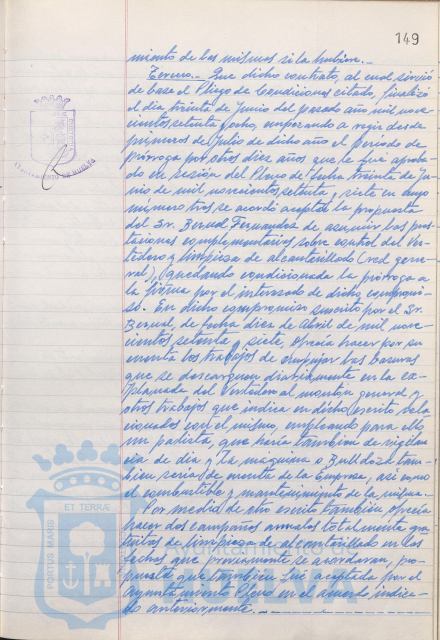 149
miento de las mismas si la hubiere.-
Tercero.- Que dicho contrato, al cual sirvió
de base el Pliego de Condiciones citado, finalizó
el día treinta de Junio del pasado año mil nove-
cientos setenta y ocho, empezando a regir desde
primeros de Julio de dicho año el periodo de
prórroga por otros diez años que le fue aproba-
do en sesión del Pleno de fecha treinta de Ju-
nio de mil novecientos setenta y siete en cuyo
número tres se acordó aceptar la propuesta
del Sr. Bernal Fernandez de asumir las pres-
taciones complementarias sobre control del Ver-
tedero y limpieza de alcantarillado (red gene-
ral), quedando condicionada la prórroga a
la firma por el interesado de dicho compromi-
so. En dicho compromiso suscrito por el Sr.
Bernal, de fecha diez de Abril de mil nove-
cientos setenta y siete, ofrecía hacer por su
cuenta los trabajos de empujar las basuras
que se descarguen diariamente en la ex-
planada del Vertedero al montón general y
otros trabajos que indica en dicho escrito rela-
cionados con el mismo, empleando para ello
un palista, que haría tambien de vigilan-
cia de día y la máquina o Bulldozer tam-
bien sería de cuenta de la Empresa, así como
el combustible y mantenimiento de la misma.
Por medio de otro escrito tambien ofrecía
hacer dos campañas anuales totalmente gra-
tuitas de limpieza de alcantarillado en las
fechas que previamente se acordaran, pro-
puesta que tambien fué aceptada por el
Ayuntamiento Pleno en el acuerdo indica-
do anteriormente.-
AYUNTAMIENTO DE HUELVA
PORTUS MARIS
ET TERRAE
Ayuntamiento de